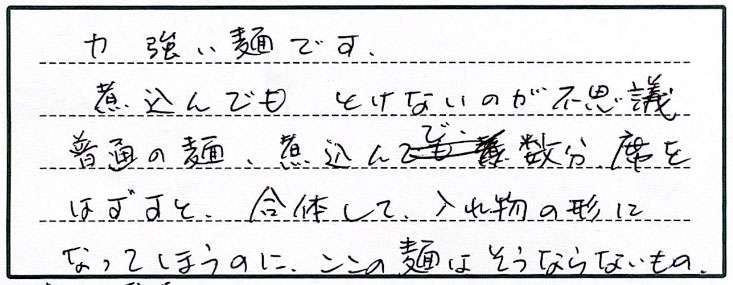 力強い麺です.
煮込んでも とけないのが不思議
普通の麺、煮込んで、数分、席を
はずすと、合体して、入れ物の形に
なってしまうのに、ここの麺はそうならないもの.